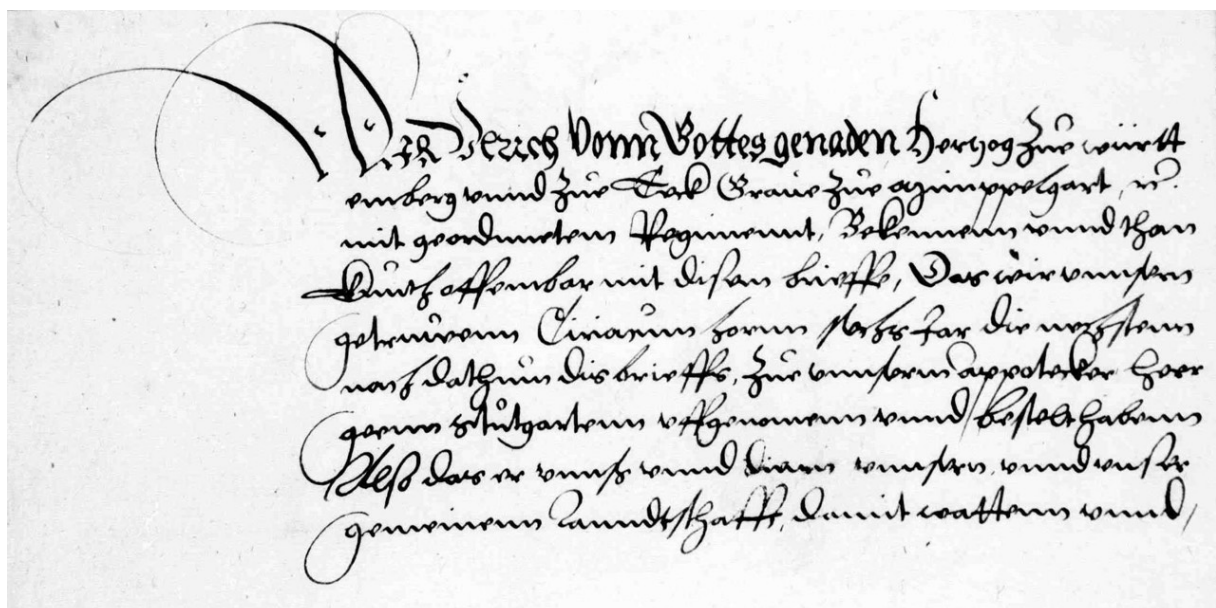 Wir Ulrich vonn Gottes genaden Hertzog zůe württ
emberg vnnd zůe Teck Graue zůe Mümppelgart, rc.
mit geordnnetem Regimennt, Bekennenn vnnd thun
Kunth offembar mit disem brieffe, Das wir vnnsern
getrüwenn Ciriacum hornn sechs Jar die nechstenn
nach dathum dis brieffs, zůe vnnserm appotecker heer
geenn Stůtgartenn vffgenomenn vnnd bestelt habenn
Also das er vnns vnnd vnnsern vnnd vnser
gemeinenn Lanndtschafft, damit wartten vnnd